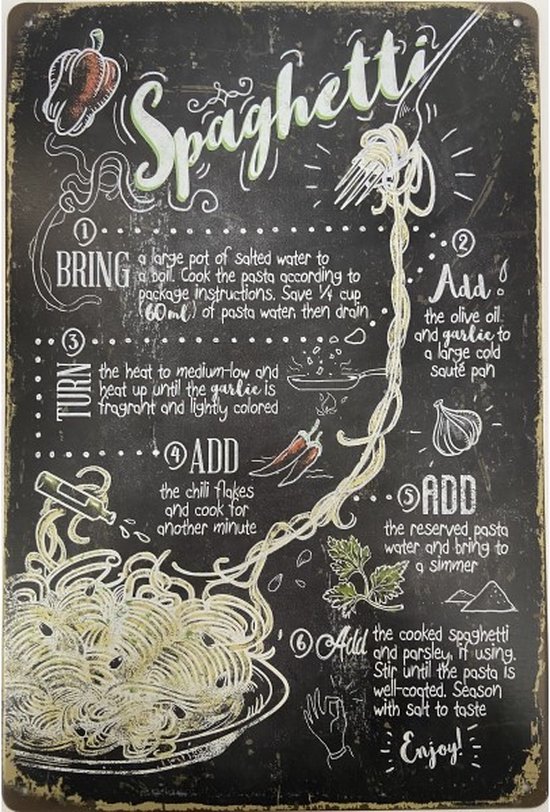 Spaghetti
1
BRING a large pot of salted water to
a boil. Cook the pasta according to
package instructions. Save 1/4 cup
(60ml) of pasta water, then drain
2
Add
the olive oil
and garlic to
a large cold
sauté pan
3
TURN the heat to medium-low and
heat up until the garlic is
fragrant and lightly colored
4 ADD
the chili flakes
and cook for
another minute
5 ADD
the reserved pasta
water and bring to
a simmer
6 Add the cooked spaghetti
and parsley, if using.
Stir until the pasta is
well-coated. Season
with salt to taste
Enjoy!